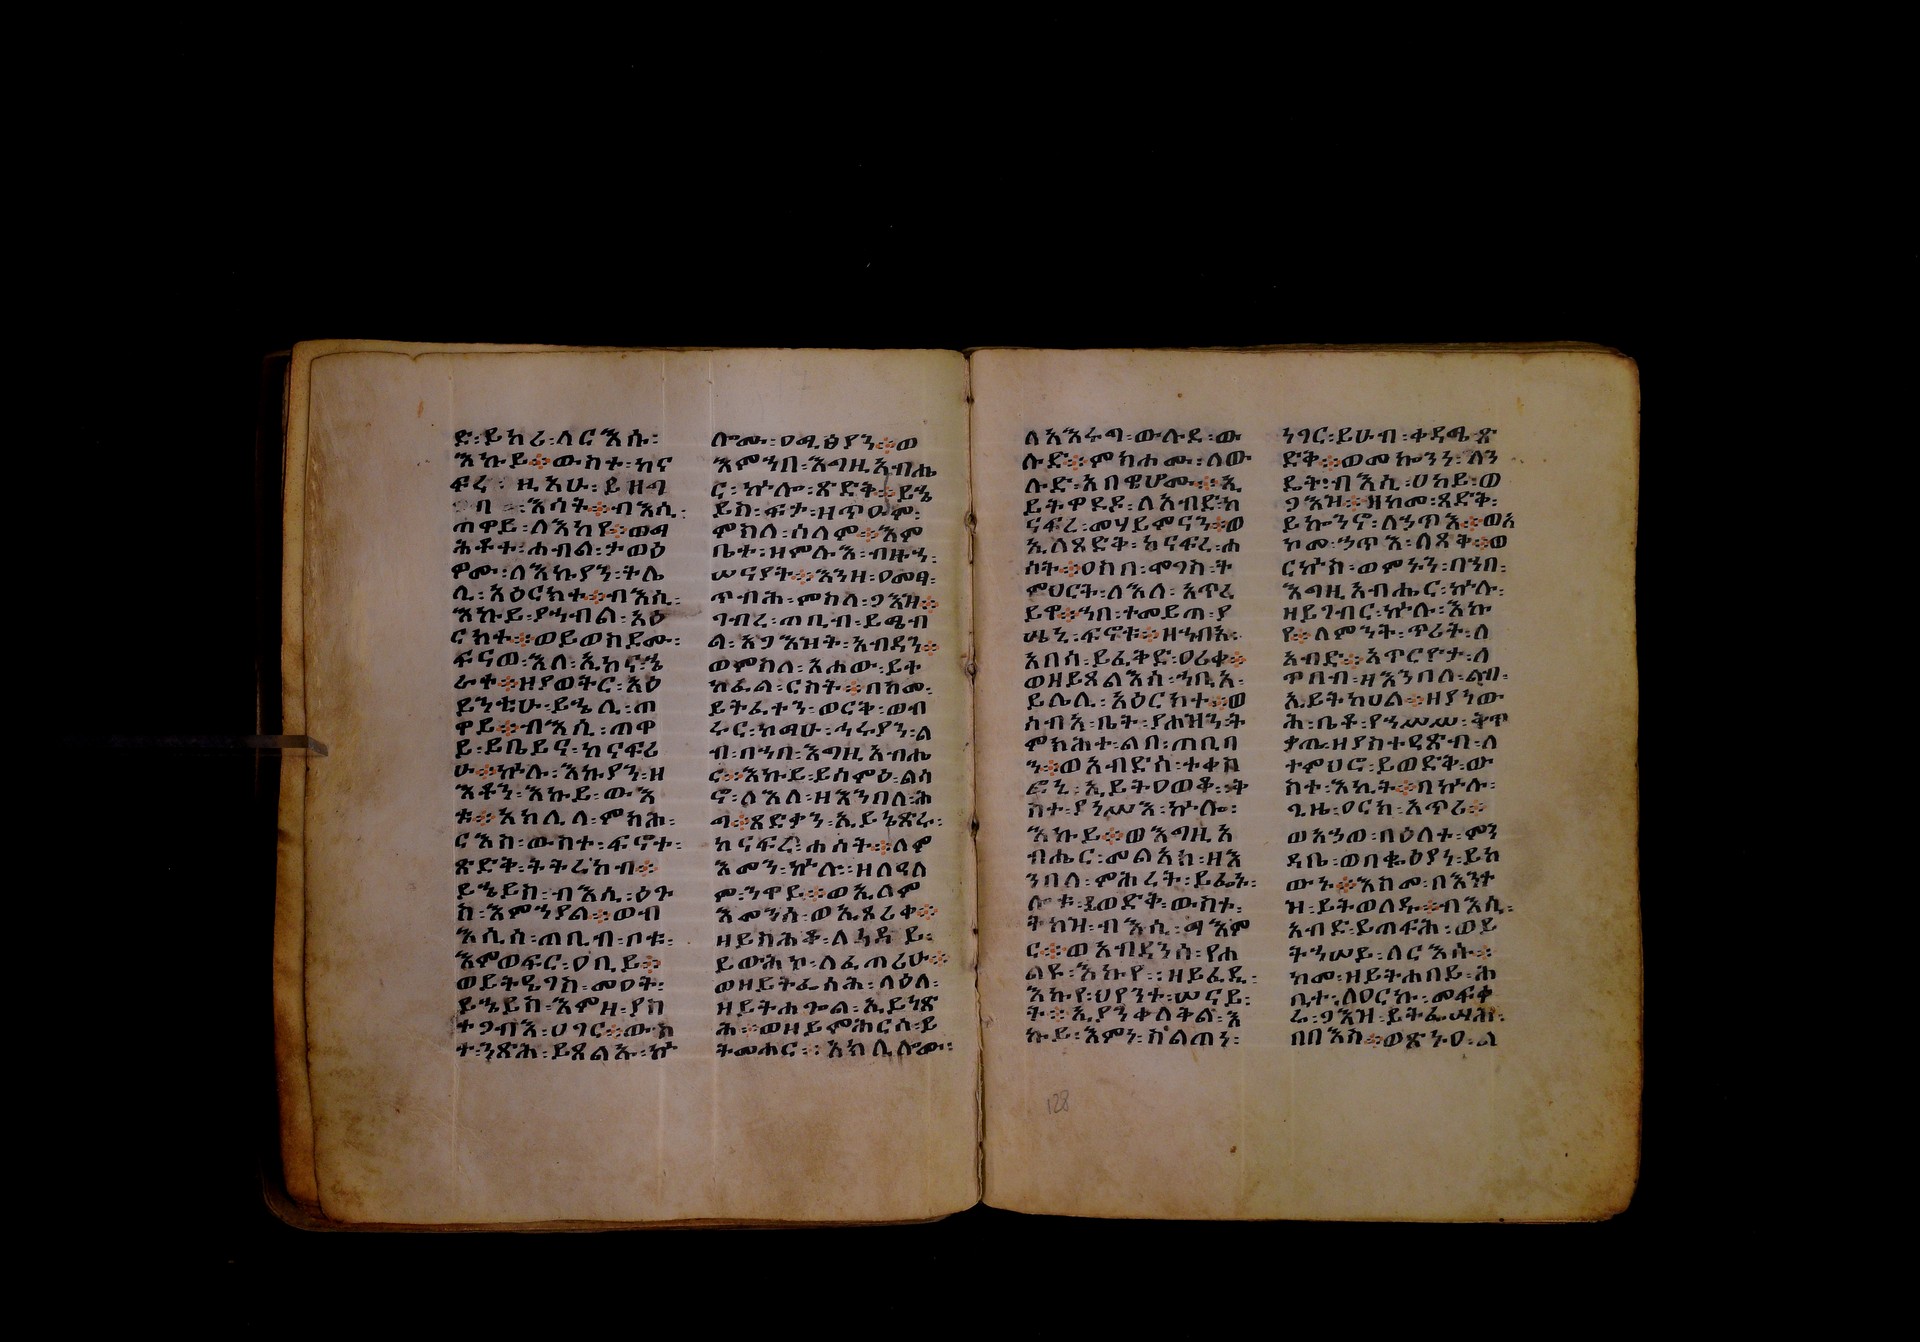 ድ፡ይከሪ፡ለርእሱ፡
እኩይ፨ውስተ፡ከና
ፍረ፡ ዚአሁ፡ ይዘግ
እሳት፨ብእሲ፡
ጠዋይ፡ለእከየ፨ወማ
ሕቶተ፡ሐብል፡ታወዕ
ዮሙ፡ለእኩያን፡ትሌ
ሊ፡አዕርክተ፨ብእሲ፡
እኩይ፡ያኀብል፡አዕ
ርክተ፨ወይወስደሙ፡
ፍናወ፡እለ፡ኢኮና፡ኄ
ራተ፨ዘያወትር፡አዕ
ይንቲሁ፡ይኄሊ፡ጠ
ዋየ፨ብእሲ፡ጠዋ
ይ፡ይቤይና፡ከናፍሪ
ሁ፨ኵሉ፡እኩያን፡ዘ
እቶን፡እኩይ፡ውእ
ቱ፨አክሊለ፡ምክሕ፡
ርእስ፡ውስተ፡ፍኖተ፡
ጽድቅ፡ትትረከብ፨
ይኄይስ፡ብእሲ፡ዕጉ
ስ፡እምኀያል፨ወብ
እሲሰ፡ጠቢብ፡ቦቱ፡
እምወፍር፡ዐቢይ፨
ወይትዔገስ፡መዐት፡
ይኄይስ፡እምዘ፡ያስ
ተጋብእ፡ሀገር፨ውስ
ተ፡ንጽሕ፡ይጸልኡ፡ኵ
ሎሙ፡ዐማፅያን፨ወ
እምኀበ፡እግዚአብሔ
ር፡ኵሎ፡ጽድቅ፨ይኄ
ይስ፡ፍታ፡ዘጥዑም፡
ምስለ፡ሰላም፨እም
ቤተ፡ዘምሉእ፡ብዙኀ፡
ሠናያት፨እንዘ፡ዐመፃ፡
ጥብሕ፡ምስለ፡ጋእዝ፨
ገብረ፡ጠቢብ፡ይቄብ
ል፡አጋእዝት፡አብዳን፨
ወምስለ፡አሐው፡ይት
ከፈል፡ርስት፨በከመ፡
ይትፈተን፡ወርቅ፡ወብ
ሩር፡ከማሁ፡ኅሩያን፡ል
ብ፡በኀበ፡እግዚአብሔ
ር፨እኩይ፡ይሰምዕ፡ልሳ
ኖ፡ለእለ፡ዘእንበለ፡ሕ
ግ፨ጻድቃን፡ኢይኔጽሩ፡
ከናፍረ፡ሐሰት፨ለም
እመን፡ኵሉ፡ዘለዓለ
ም፡ንዋይ፨ወኢለም
እመንሰ፡ወኢጸሪቀ፨
ዘይስሕቆ፡ለነዳይ፡
ይወሕኮ፡ለፈጣሪሁ፨
ወዘይትፌሳሕ፡ላዕለ፡
ዘይትሐጐል፡ኢይነጽ
ሕ፨ወዘይምሕርሰ፡ይ
ትመሐር፨አክሊሎሙ፡
ለአእሩግ፡ውሉደ፡ው
ሉድ፨ምክሐሙ፡ለው
ሉድ፡አበዊሆሙ፨ኢ
ይትዋደዶ፡ለአብድ፡ከ
ናፍረ፡መሃይምናን፨ወ
ኢለጻድቅ፡ከናፍረ፡ሐ
ሰት፨ዐስበ፡ሞገስ፡ት
ምህርት፡ለእለ፡አጥረ
ይዋ፨ኀበ፡ተመይጠ፡ያ
ሤኒ፡ፍኖቱ፨ዘኀብአ፡
አበሳ፡ይፈቅድ፡ዐሪቀ፨
ወዘይጸልእሰ፡ኀቢአ፡
ይሌሊ፡አዕርክተ፨ወ
ሰብአ፡ቤት፡ያሐዝን፡ት
ምክሕተ፡ልበ፡ጠቢባ
ን፨ወአብድሰ፡ተቀስ
ፎኒ፡ኢይትዐወቆ፡ት
ስተ፡ያነሥእ፡ኵሎ፡
እኩይ፨ወእግዚአ
ብሔር፡መልአከ፡ዘእ
ንበለ፡ምሕረት፡ይፌኑ፡
ሎቱ፨ይወድቅ፡ውስተ፡
ትክዝ፡ብእሲ፡ማእም
ር፨ወአብዳንሰ፡የሐ
ልዩ፡እኩየ፨ዘይፈዲ፡
እኩየ፡ህየንተ፡ሠናይ፡
ት፨ኢያንቀለቅል፡እ
ኩይ፡እምነ፡ስልጠን፡
ነገር፡ይሁብ፡ቀዳሜ፡ጽ
ድቅ፨ወመኰንን፡ለን
ዴት፡ብእሲ፡ሀከይ፡ወ
ጋእዝ፨ዘከመ፡ጻድቅ፡
ይኴንኖ፡ለኃጥእ፨ወአ
ኮመ፡ኀጥእ፡ለጻቅ፨ወ
ርኩስ፡ወምኑን፡በኀበ፡
እግዚአብሔር፡ኵሉ፡
ዘይገብር፡ኵሉ፡እኩ
የ፨ለምንት፡ጥሪት፡ለ
አብድ፨አጥርዮታ፡ለ
ጥበብ፡ዘእንበለ፡ልብ፡
ኢይትከሀል፨ዘያነው
ሕ፡ቤቶ፡የኀሥሥ፡ቅጥ
ቃጤ፡ዘያስተዔጽብ፡ለ
ተምህሮ፡ይወድቅ፡ው
ስተ፡እኪት፨በኵሉ፡
ጊዜ፡ዐርክ፡አጥሪ፨
ወአኃው፡በዕለተ፡ምን
ዳቤ፡ወበቁዕያነ፡ይከ
ውኑ፨እስመ፡በእንተ
ዝ፡ይትወለዱ፨ብእሲ፡
አብድ፡ይጠፍሕ፡ወይ
ትኀሠይ፡ለርእሱ፨
ከመ፡ዘይትሐበይ፡ሕ
ቢተ፡ለዐርኩ፡መፍቀ
ሬ፡ጋእዝ፡ይትፌሣሕ፡
በበእስ፨ወጽኑዐ፡ል
128